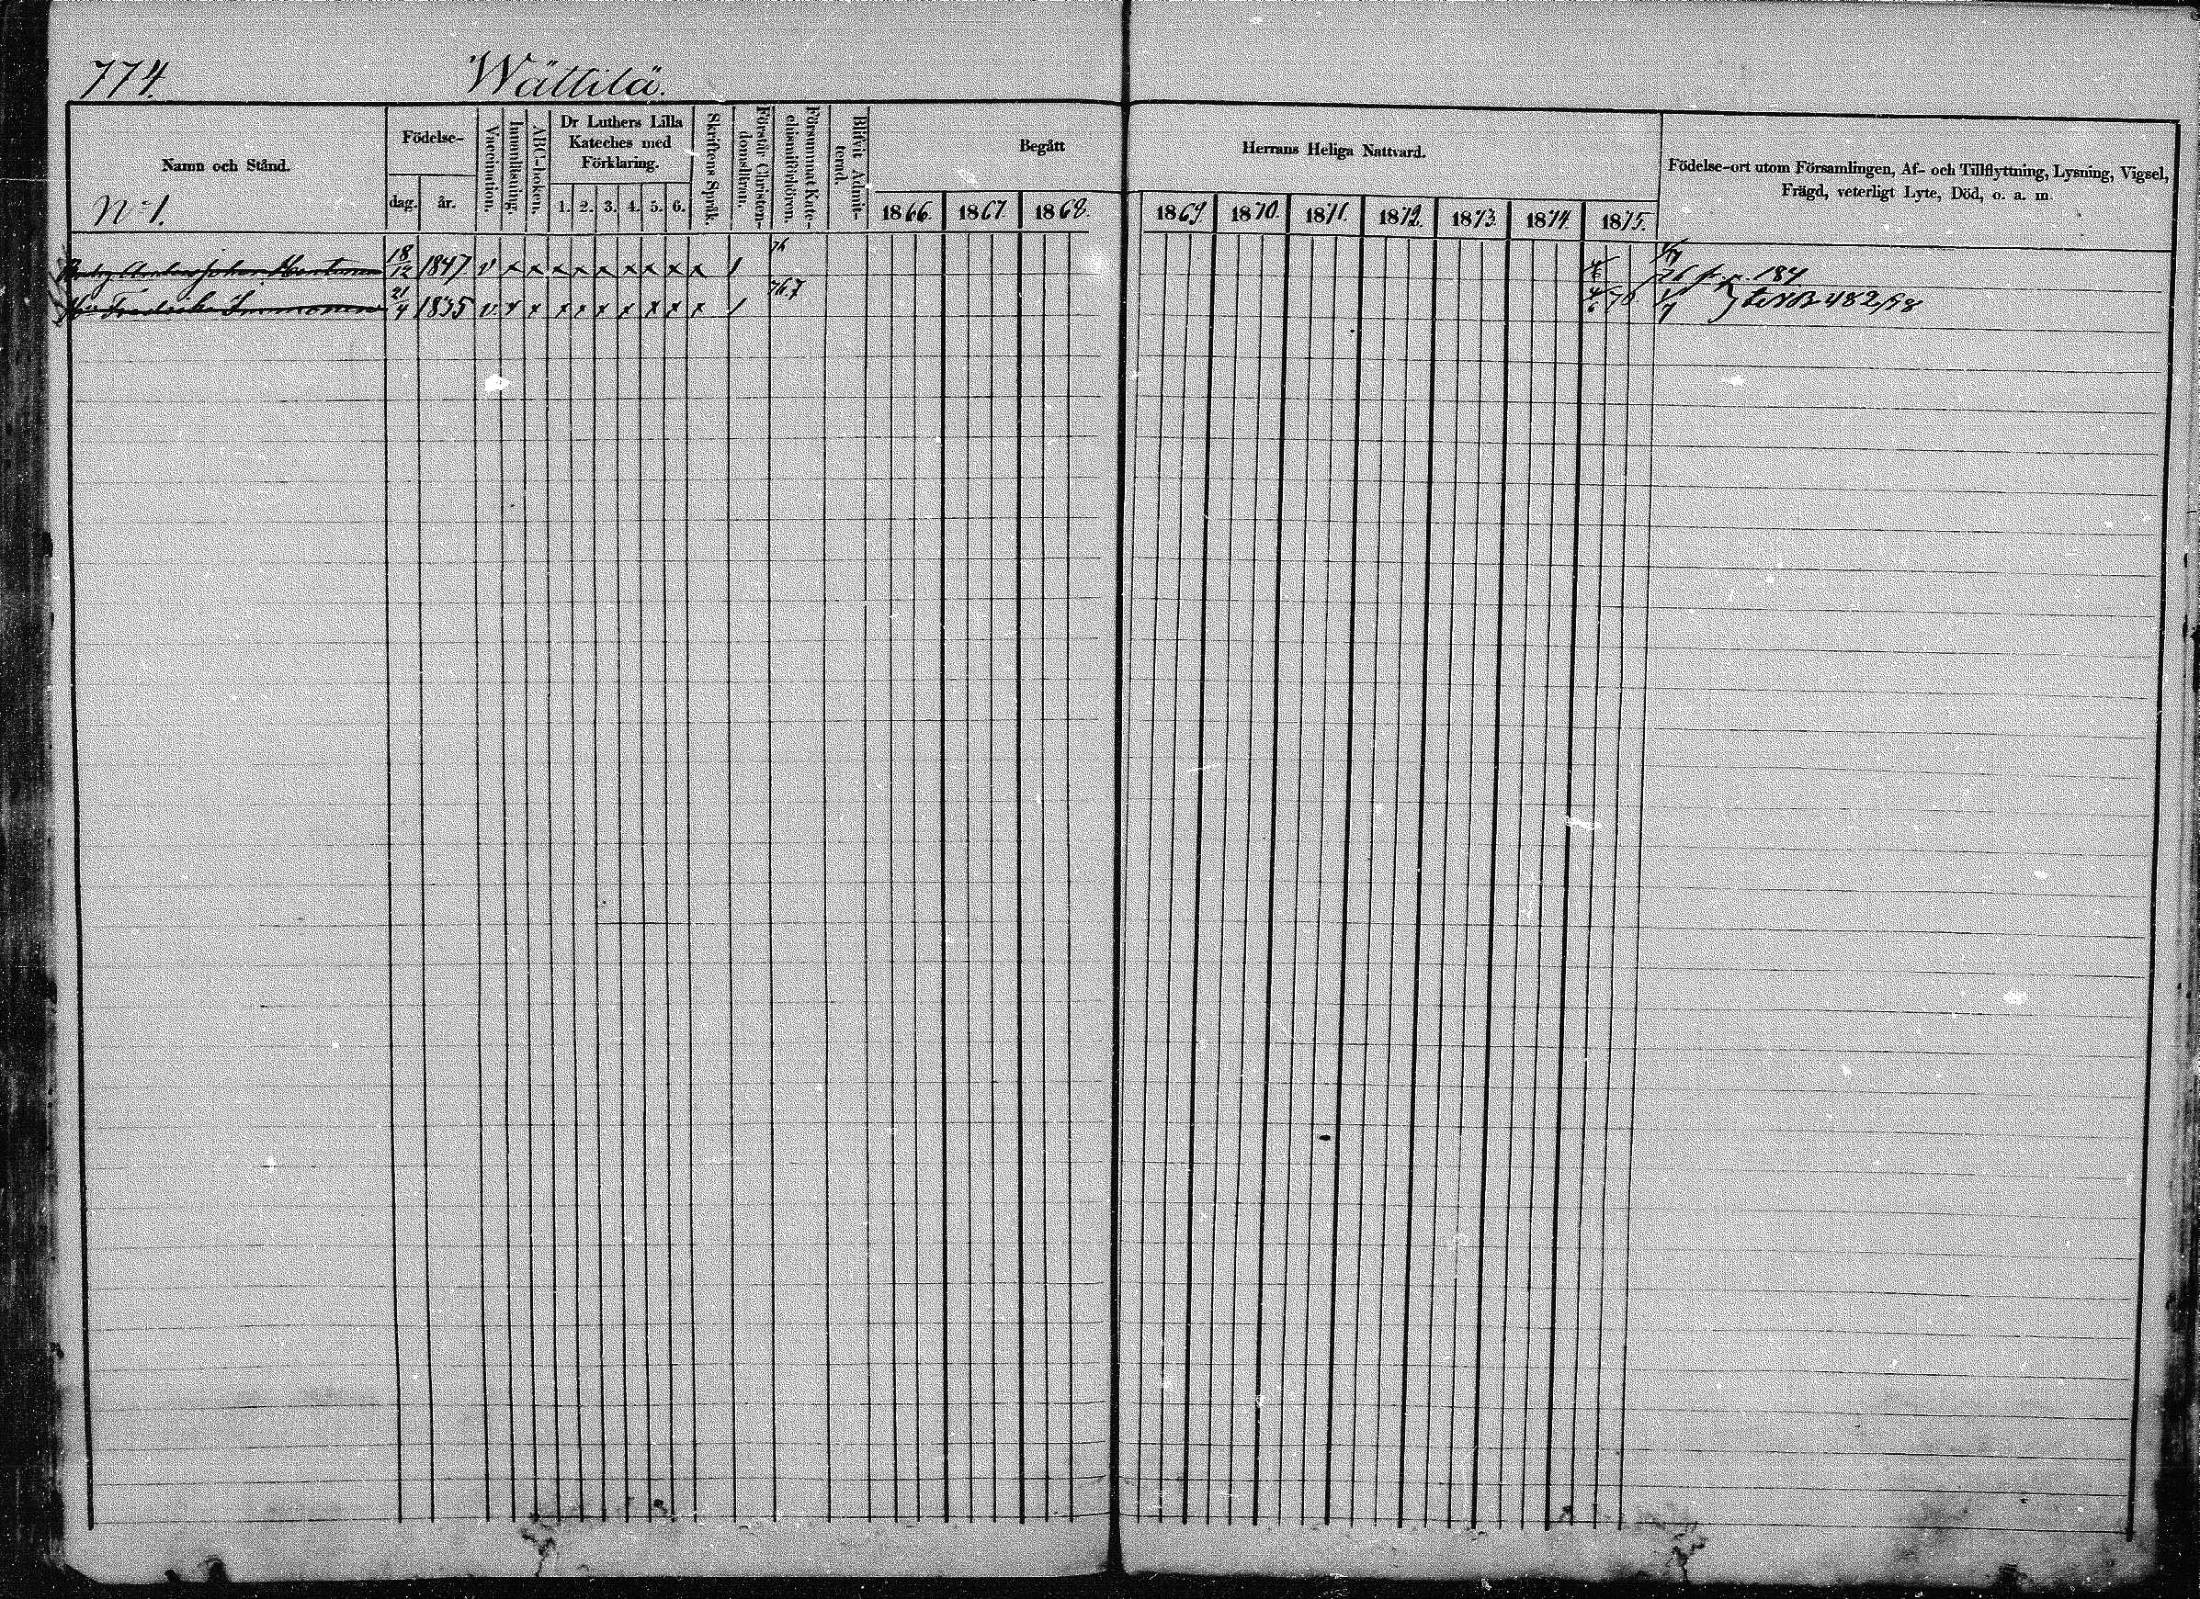 774.
Wättilä.
Namn och Stånd.
No 1.
Födelse-
dag. år.
Vaccination.
Innanläsning.
ABC-boken.
Dr Luthers Lilla
Kateches med
Förklaring.
1. 2. 3. 4. 5. 6.
Skriftens Språk.
Förstår Christen-
domsläran.
Försummat Kate-
chismiförhören.
Blifvit Admit-
terad.
Begått Herrans Heliga Nattvard.
1866. 1867. 1868. 1869. 1870. 1871. 1872. 1873. 1874. 1875.
Födelse-ort utom Församlingen, Af- och Tillflyttning, Lysning, Vigsel,
Frägd, veterligt Lyte, Död, o. a. m.
Johan 18/12 1847 v x x x x x x x x x 76 76 p. 184
Fredrika Immonen 21/4 1835 v x x x x x x x x x 76.7 482/88